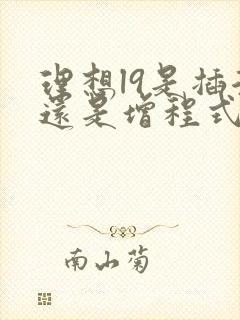 理想l9是插
還是增程式
南山菊